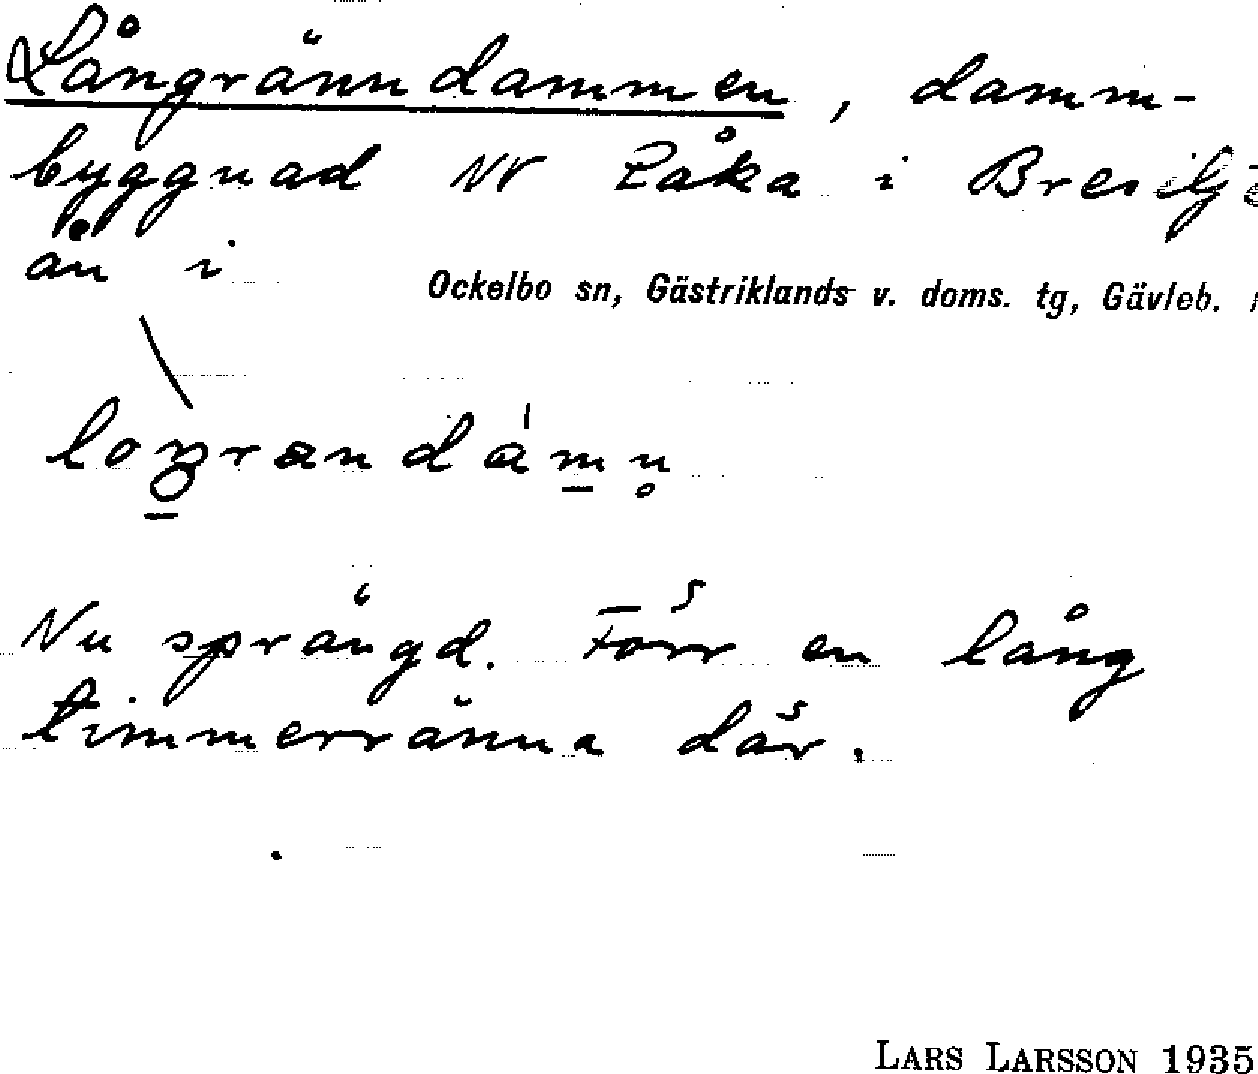 Långränndammen, damm-
byggnad NV Råka i Bresilje
ån i
Ockelbo sn, Gästriklands v. doms. tg, Gävleb.
Nu sprängd. Förr en lång
timmerränna där.
LARS LARSSON 1935